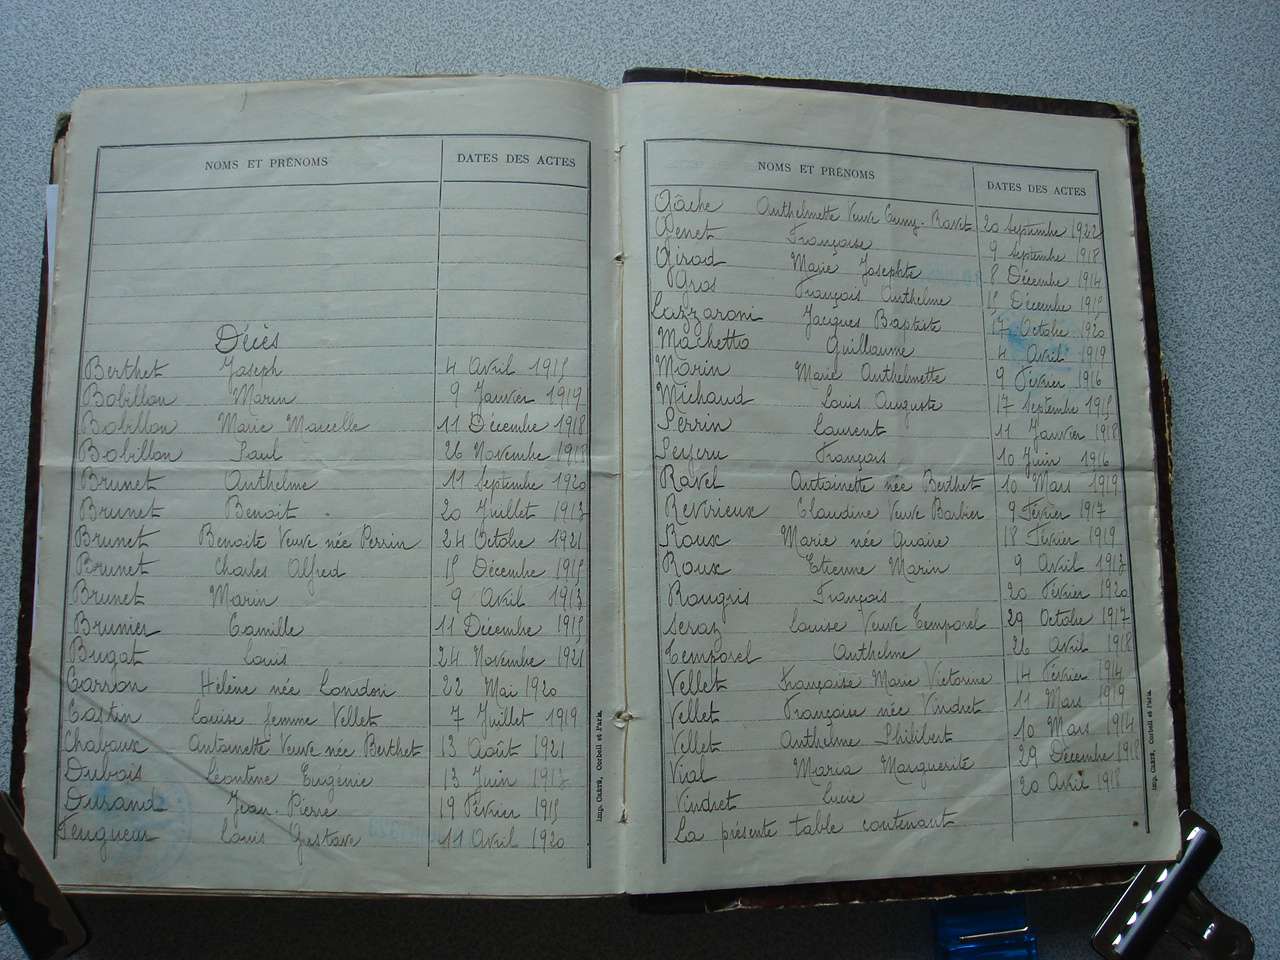 NOMS ET PRÉNOMS DATES DES ACTES
Décès
Berthet Joseph 4 Avril 1915
Bobillon Marin 9 Janvier 1919
Bobillon Marie Marcelle 11 Décembre 1918
Bobillon Paul 26 Novembre 1918
Brunet Anthelme 11 Septembre 1920
Brunet Benoit 20 Juillet 1913
Brunet Benoite Veuve née Perrin 24 Octobre 1921
Brunet Charles Alfred 15 Décembre 1915
Brunet Marin 9 Avril 1913
Brunier Camille 11 Décembre 1915
Bugat Louis 24 Novembre 1921
Carron Hélène née Londori 22 Mai 1920
Castin Louise femme Vellet 7 Juillet 1919
Chaboux Antoinette Veuve née Berthet 13 Août 1921
Dubois Léontine Eugénie 13 Juin 1913
Durand Jean-Pierre 19 Février 1915
Feugueur Louis Gustave 11 Avril 1920
Imp. CRÉTÉ, Corbeil et Paris.
NOMS ET PRÉNOMS DATES DES ACTES
Gâche Anthelmette Veuve Cuny-Ravet 20 Septembre 1922
Genet Françoise 9 Septembre 1918
Girod Marie Josephte 8 Décembre 1914
Gros François Anthelme 15 Décembre 1915
Lazzaroni Jacques Baptiste 17 Octobre 1920
Machetto Guillaume 4 Avril 1919
Marin Marie Anthelmette 9 Février 1916
Michaud Louis Auguste 17 Septembre 1915
Perrin Laurent 11 Janvier 1918
Peyeru François 10 Juin 1916
Ravet Antoinette née Berthet 10 Mars 1919
Revirieux Claudine Veuve Barbier 9 Février 1917
Roux Marie née Quaire 18 Février 1919
Roux Etienne Marin 9 Avril 1913
Rougris François 20 Février 1920
Seraz Louise Veuve Temporel 29 Octobre 1917
Temporel Anthelme 26 Avril 1918
Vellet Françoise Marie Victorine 14 Février 1914
Vellet Françoise née Vindret 11 Mars 1919
Vellet Anthelme Philibert 10 Mars 1914
Vial Maria Marguerite 29 Décembre 1918
Vindret Lucie 20 Avril 1918
La présente table contenant
Imp. CRÉTÉ, Corbeil et Paris.